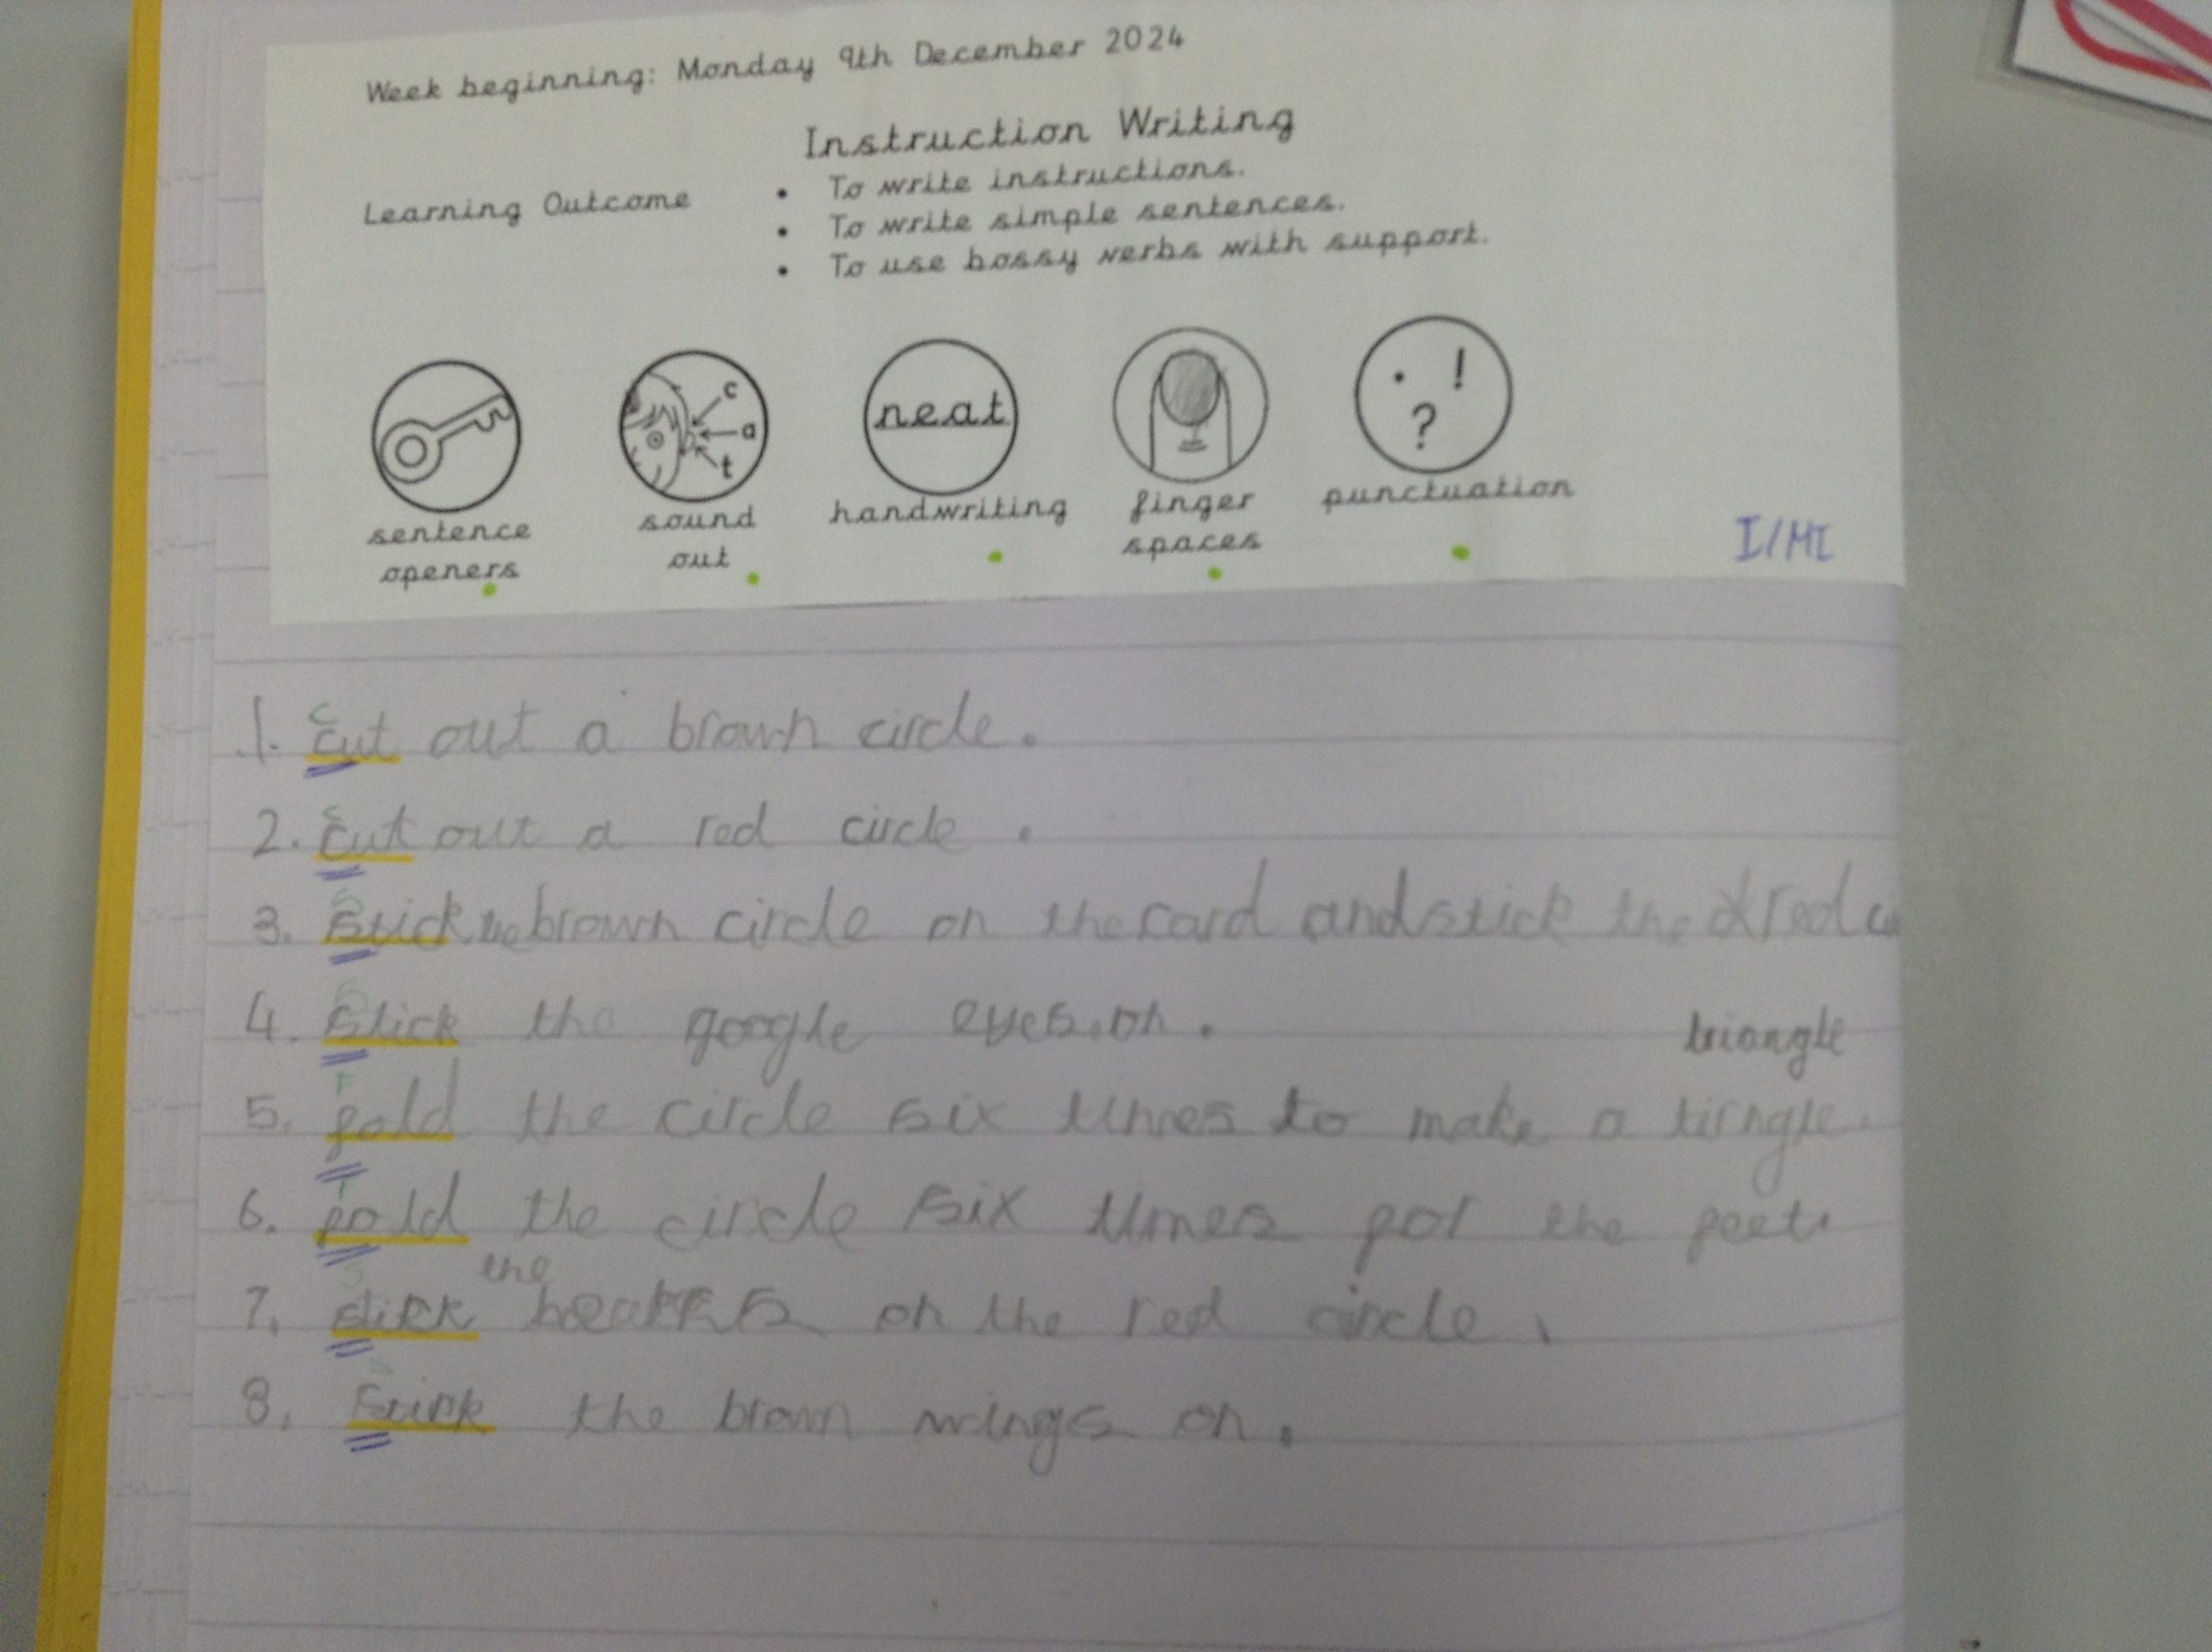 Week beginning: Monday 9th December 2024
Instruction Writing
Learning Outcome
• To write instructions.
• To write simple sentences.
• To use bossy verbs with support.
c
a
t
neat
. ! ?
sentence openers
sound out
handwriting
finger spaces
punctuation
I/MI
1. cut out a brown circle.
2. cut out a red circle.
3. Stick the brown circle on the card and stick the red
4. Stick the google eyes.on.
triangle
5. fold the circle six times to make a tirngle.
6. fold the circle six times for the feet.
the
7. stick on the red circle.
8. Stick the brown wings on.